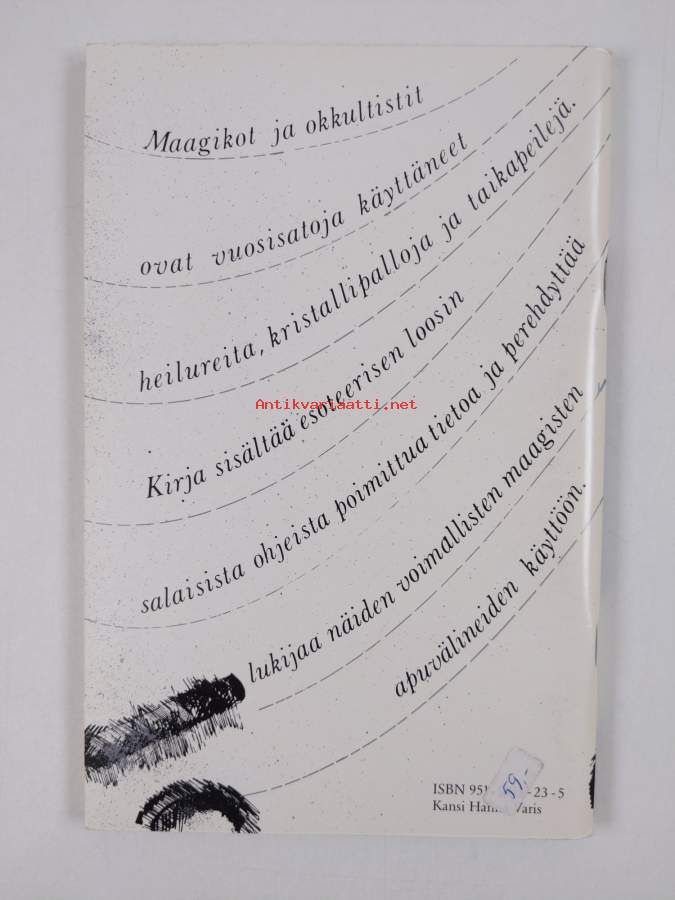 Maagikot ja okkultistit
ovat vuosisatoja käyttäneet
heilureita, kristallipalloja ja taikapeilejä.
Kirja sisältää esoteerisen loosin
Antikvariaatti.net
salaisista ohjeista poimittua tietoa ja perehdyttää
lukijaa näiden voimallisten maagisten
apuvälineiden käyttöön.
59,-
ISBN 951 -23-5
Kansi Varis